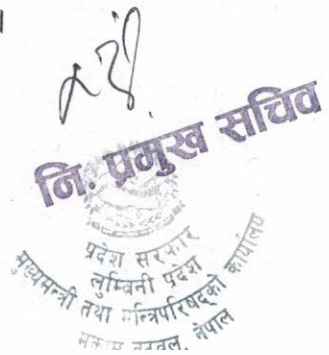 नि. प्रमुख सचिव
प्रदेश सरकार
लुम्बिनी प्रदेश
मुख्यमन्त्री तथा मन्त्रिपरिषद्को कार्यालय
नेपाल